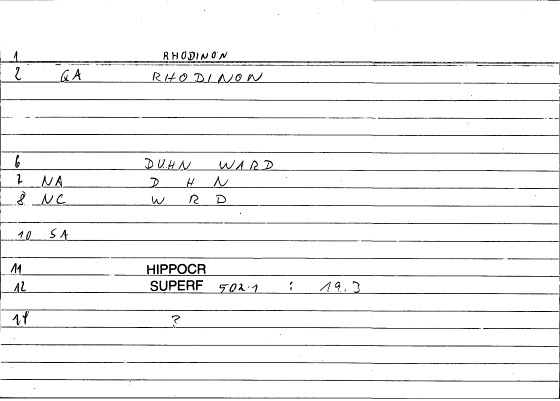 1 RHODINON
2 GA RHODINON
6 DUHN WARD
7 NA D H N
8 NC W R D
10 SA
11 HIPPOCR
12 SUPERF 502.1 : 19.3
14 ?